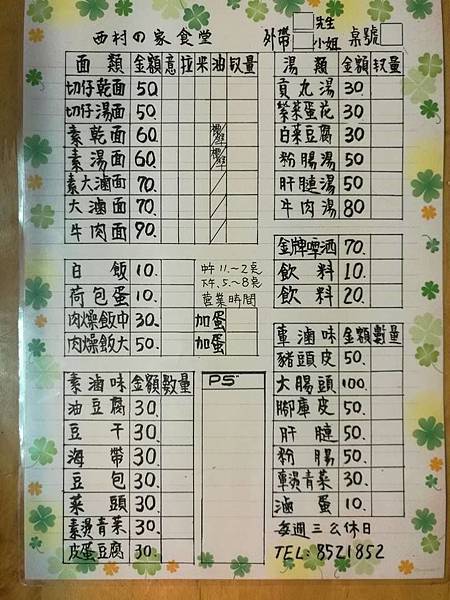 西村の家食堂 外帶 先生 小姐 桌號
面類 金額 意 拉 米 油 数量
切仔乾面 50.
切仔湯面 50.
素乾面 60.
素湯面 60.
素大滷面 70.
大滷面 70.
牛肉面 90.
白飯 10.
荷包蛋 10.
肉燥飯中 30. 加蛋
肉燥飯大 50. 加蛋
中午11.~2点
下午.5.~8点
營業時間
素滷味 金額 數量
油豆腐 30.
豆干 30.
海帶 30.
豆包 30.
菜頭 30.
素燙青菜 30.
皮蛋豆腐 30.
PS
湯類 金額 数量
貢丸湯 30.
紫菜蛋花 30.
白菜豆腐 30
粉腸湯 50
肝腱湯 50
牛肉湯 80
金牌啤酒 70.
飲料 10.
飲料 20.
葷滷味 金額 數量
豬頭皮 50.
大腸頭 100.
腳庫皮 50.
肝腱 50.
粉腸 50.
葷燙青菜 30.
滷蛋 10.
每週三公休日
TEL:8521852